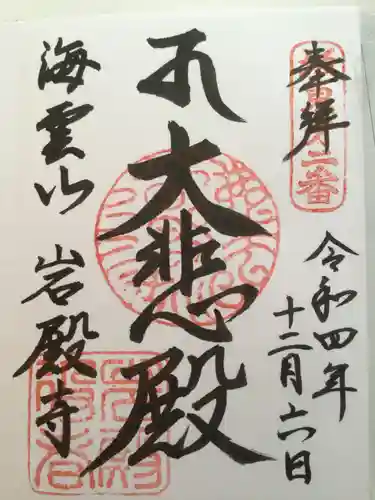 奉拝
坂東第二番
令和四年
十二月六日
大悲殿
海雲山
岩殿寺